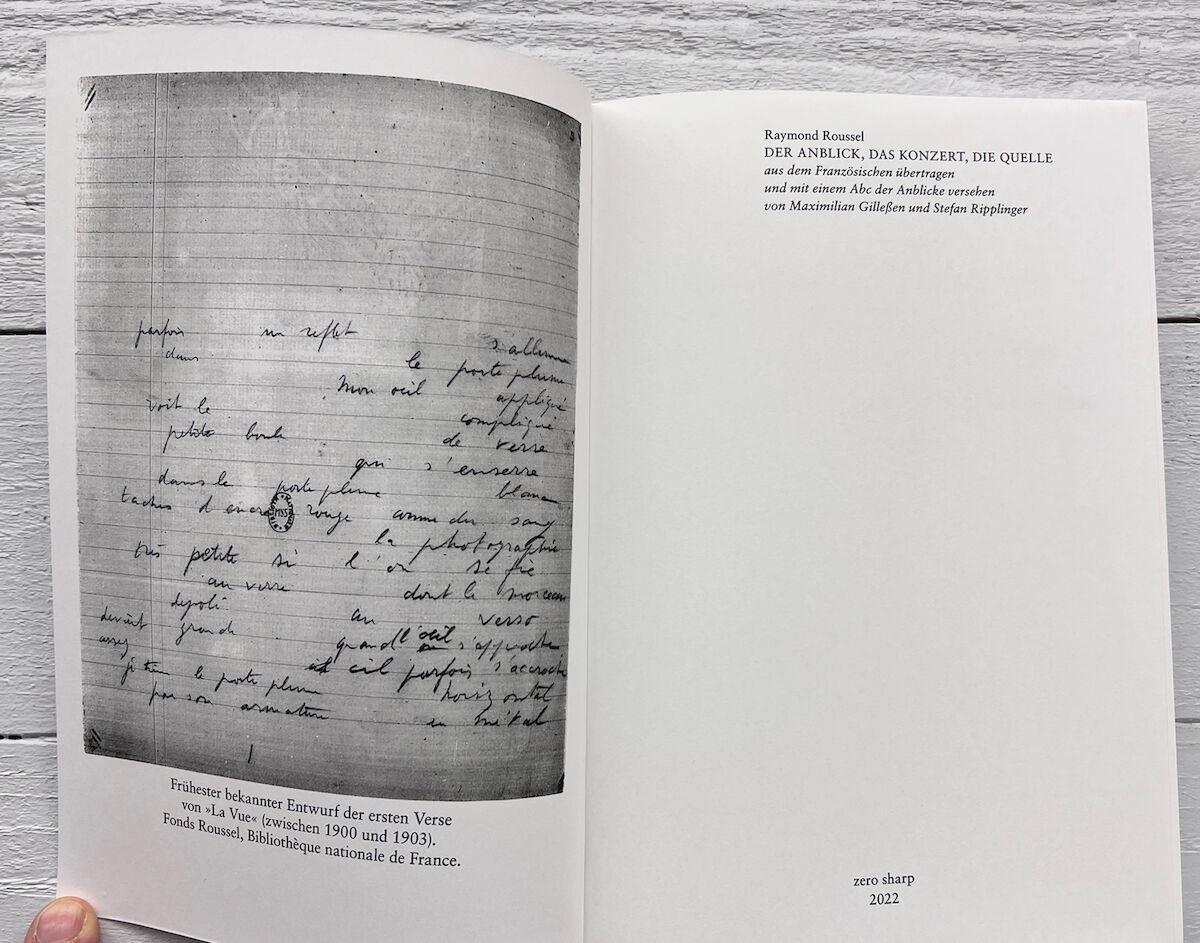 parfois un reflet s'allume
dans le porte plume
Mon oeil appliqué
voit le compliqué
petite boule de verre
qui s'enserre
dans le porte plume blanc
taches d'encre rouge comme du sang
la photographie
très petite si l'on se fie
au verre dont le morceau
dépoli au verso
devient grande quand l'oeil s'approche
assez cil parfois s'accroche
je tiens le porte plume horizontal
par son armature en métal
1
Frühester bekannter Entwurf der ersten Verse
von »La Vue« (zwischen 1900 und 1903).
Fonds Roussel, Bibliothèque nationale de France.
Raymond Roussel
DER ANBLICK, DAS KONZERT, DIE QUELLE
aus dem Französischen übertragen
und mit einem Abc der Anblicke versehen
von Maximilian Gilleßen und Stefan Ripplinger
zero sharp
2022